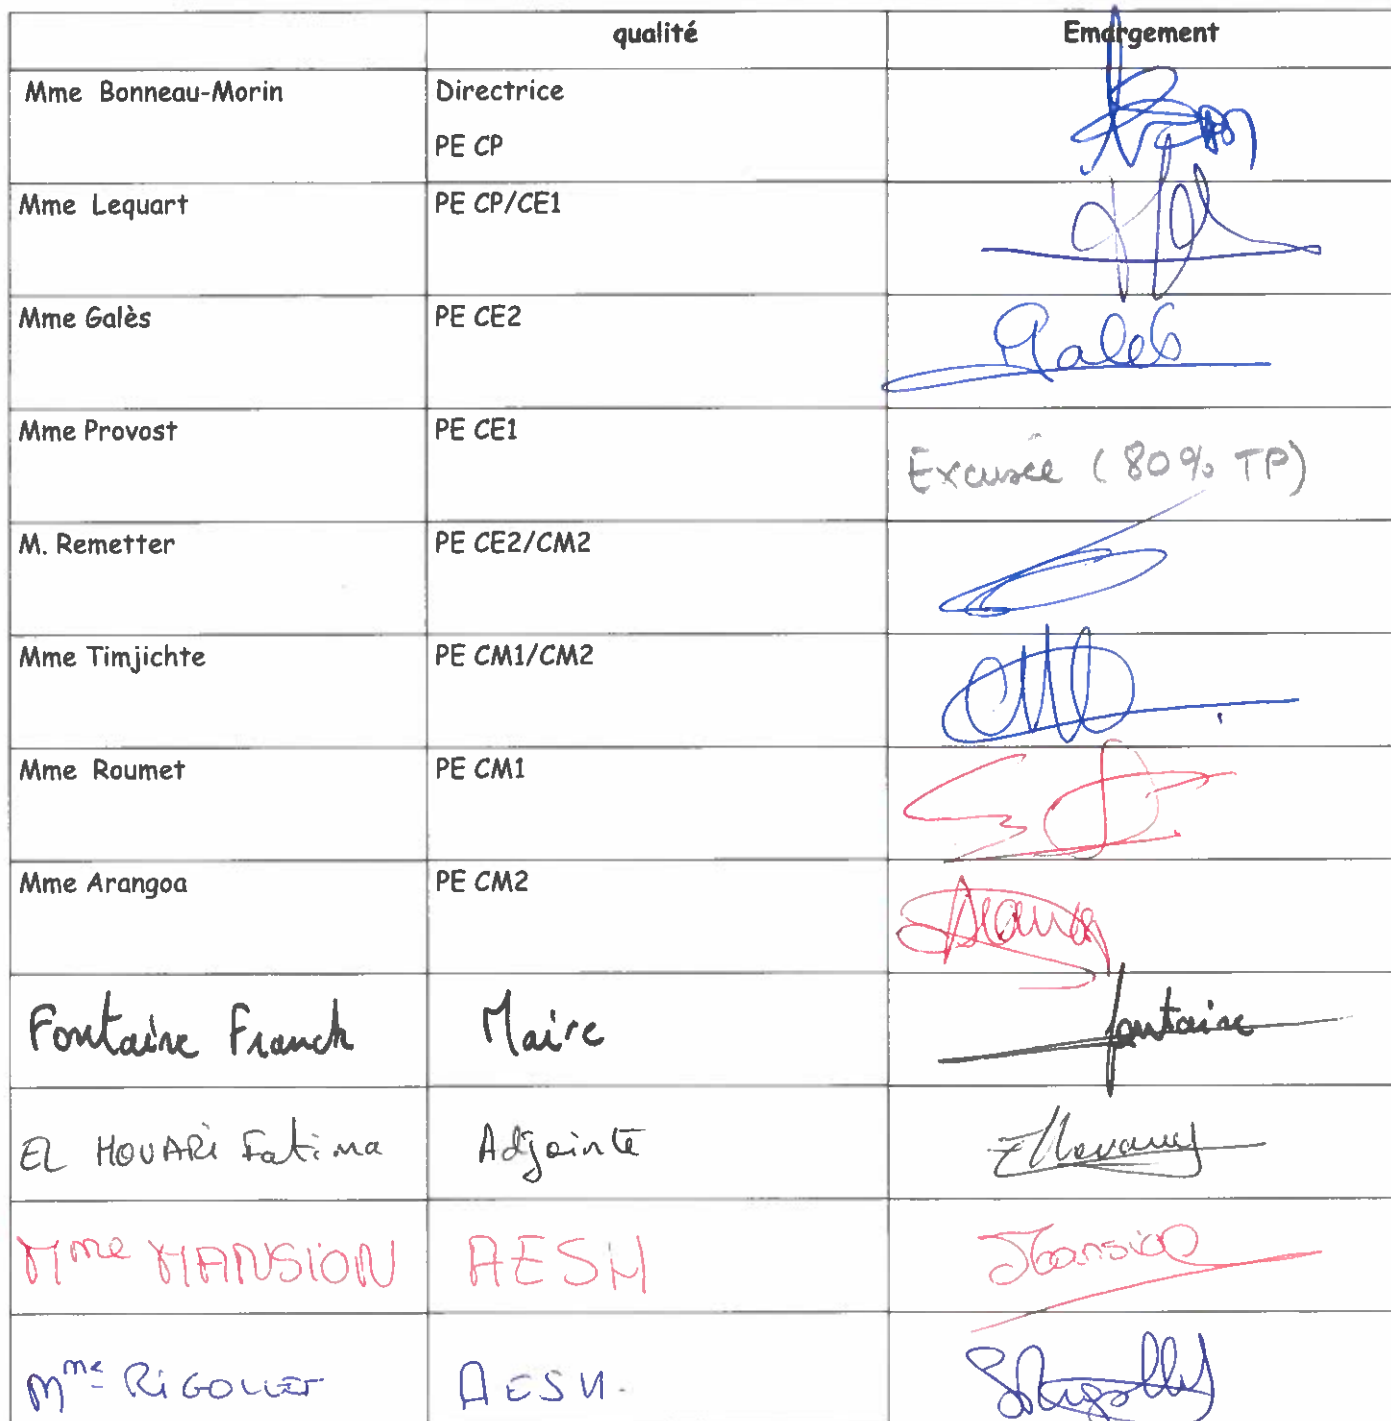 qualité Emargement
Mme Bonneau-Morin Directrice
PE CP
Mme Lequart PE CP/CE1
Mme Galès PE CE2
Mme Provost PE CE1
Excusée (80% TP)
M. Remetter PE CE2/CM2
Mme Timjichte PE CM1/CM2
Mme Roumet PE CM1
Mme Arangoa PE CM2
Fontaine Franck Maire fontaine
EL HOUARi Fatima Adjointe
Mme MANSiON AESH Mansion
Mme RiGOLLET AESH